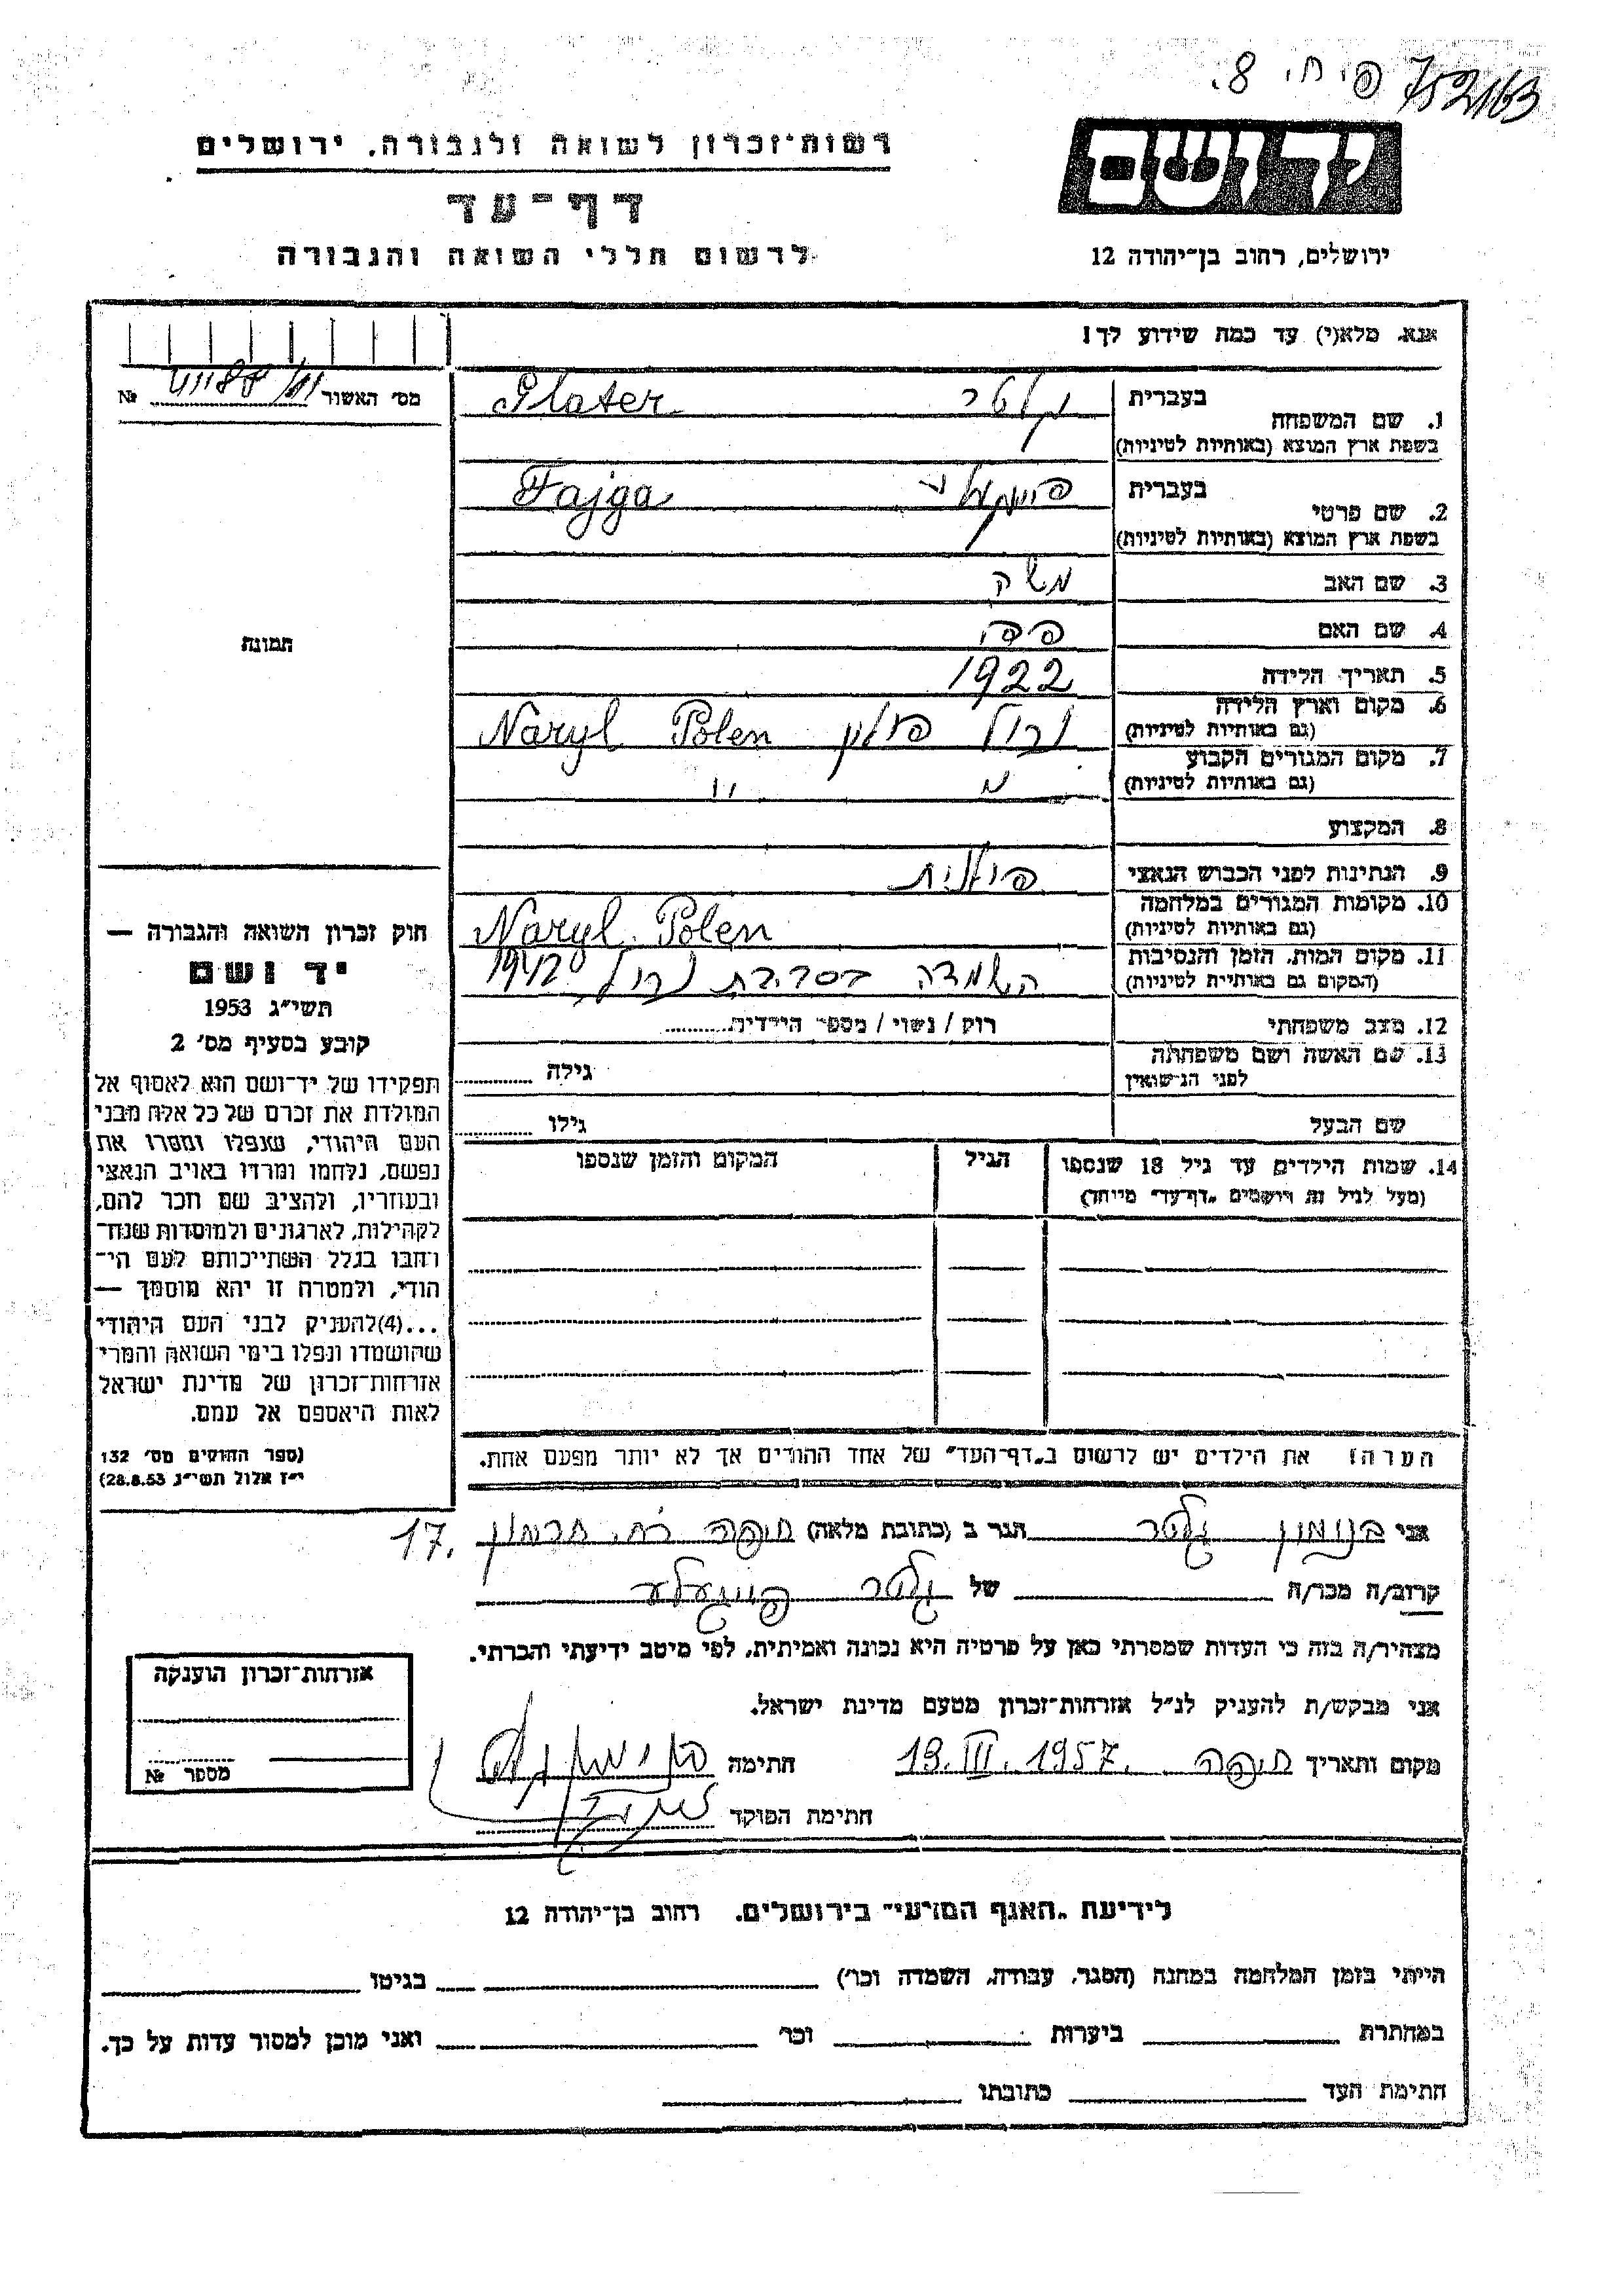 752163 פ. חי. 8.
יד ושם
ירושלים, רחוב בן־יהודה 12
רשות־זכרון לשואה ולגבורה, ירושלים
דף־עד
לרשום חללי השואה והגבורה
אנא, מלא(י) עד כמה שידוע לך!
מס' האשור №
תמונה
1. שם המשפחה בעברית פלטר Plater
בשפת ארץ המוצא (באותיות לטיניות)
2. שם פרטי בעברית Fajga
בשפת ארץ המוצא (באותיות לטיניות)
3. שם האב משה
4. שם האם
5. תאריך הלידה 1922
6. מקום וארץ הלידה נרול פולין Naryl Polen
(גם באותיות לטיניות)
7. מקום המגורים הקבוע
(גם באותיות לטיניות)
8. המקצוע
9. הנתינות לפני הכבוש הנאצי פולנית
10. מקומות המגורים במלחמה Naryl. Polen
(גם באותיות לטיניות)
11. מקום המות, הזמן והנסיבות השמדה בסביבת נרול 1942
(המקום גם באותיות לטיניות)
12. מצב משפחתי רווק / נשוי / מספר הילדים
13. שם האשה ושם משפחתה גילה
לפני הנישואין
שם הבעל גילו
14. שמות הילדים עד גיל 18 שנספו הגיל המקום והזמן שנספו
(מעל לגיל זה רושמים "דף־עד" מיוחד)
הערה! את הילדים יש לרשום ב"דף־העד" של אחד ההורים אך לא יותר מפעם אחת.
חוק זכרון השואה והגבורה —
יד ושם
תשי"ג 1953
קובע בסעיף מס' 2
תפקידו של יד־ושם הוא לאסוף אל
המולדת את זכרם של כל אלה מבני
העם היהודי, שנפלו ומסרו את
נפשם, נלחמו ומרדו באויב הנאצי
ובעוזריו, ולהציב שם וזכר להם,
לקהילות, לארגונים ולמוסדות שנח־
רבו בגלל השתייכותם לעם הי־
הודי, ולמטרה זו יהא מוסמך —
...(4)להעניק לבני העם היהודי
שהושמדו ונפלו בימי השואה והמרי
אזרחות־זכרון של מדינת ישראל
לאות היאספם אל עמם.
(ספר החוקים מס' 132
י"ז אלול תשי"ג 28.8.53)
אני בנימין פלטר הגר ב (כתובת מלאה) חיפה רח. חרמון 17.
קרוב/ה מכר/ה של פלטר פייגעלע
מצהיר/ה בזה כי העדות שמסרתי כאן על פרטיה היא נכונה ואמיתית, לפי מיטב ידיעתי והכרתי.
אני מבקש/ת להעניק לנ"ל אזרחות־זכרון מטעם מדינת ישראל.
מקום ותאריך חיפה 19.III.1957. חתימה
חתימת הפוקד
אזרחות־זכרון הוענקה
מספר №
לידיעת "האגף המדעי" בירושלים, רחוב בן־יהודה 12
הייתי בזמן המלחמה במחנה (הסגר, עבודה, השמדה וכו') בגיטו
במחתרת ביערות וכו' ואני מוכן למסור עדות על כך.
חתימת העד כתובתו